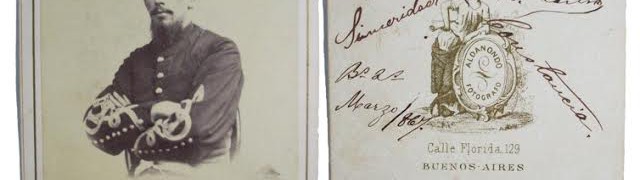 Sinceridad
Constancia
Bs. As.
Marzo/867
ALDANONDO
FOTOGRAFO
Calle Florida, 129
BUENOS-AIRES